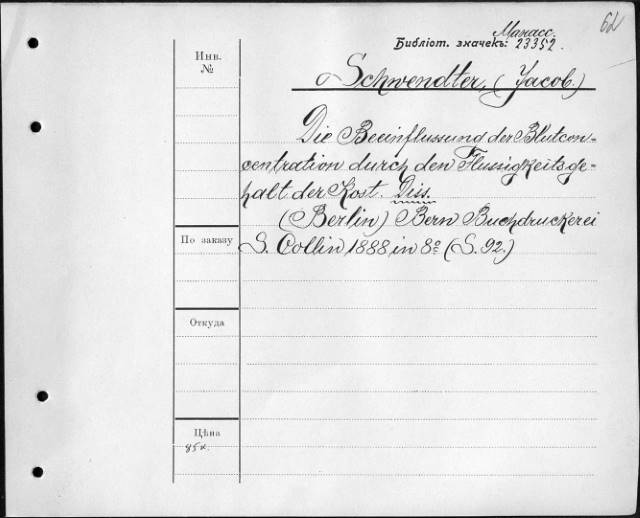 62
Манасс.
Библіот. значекъ: 23352.
Инв.
№
Schwendter, (Jacob.)
Die Beeinflussung der Blutcon-
centration durch den Flussigkeitsge-
halt der Kost. Diss.
(Berlin) Bern Buchdruckerei
По заказу
S. Collin 1888 in 8º (S. 92.)
Откуда
Цѣна
85к.